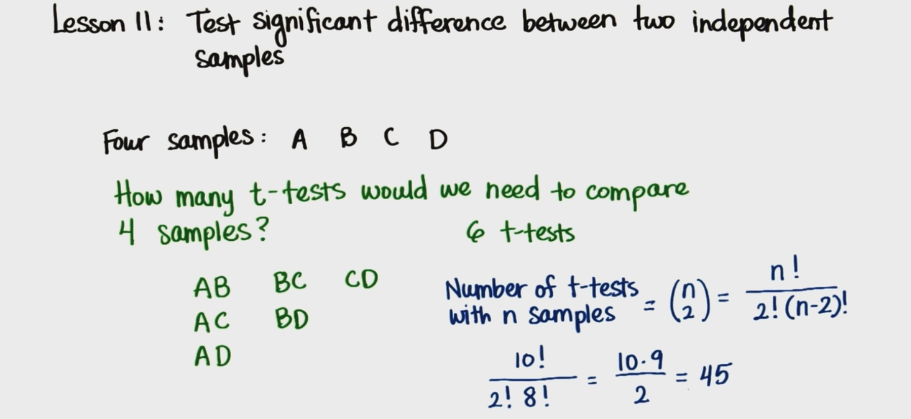 Lesson 11: Test significant difference between two independent
samples
Four samples: A B C D
How many t-tests would we need to compare
4 samples?
6 t-tests
AB BC CD
AC BD
AD
Number of t-tests
with n samples = (n 2) = n! / 2!(n-2)!
10! / 2! 8! = 10·9 / 2 = 45